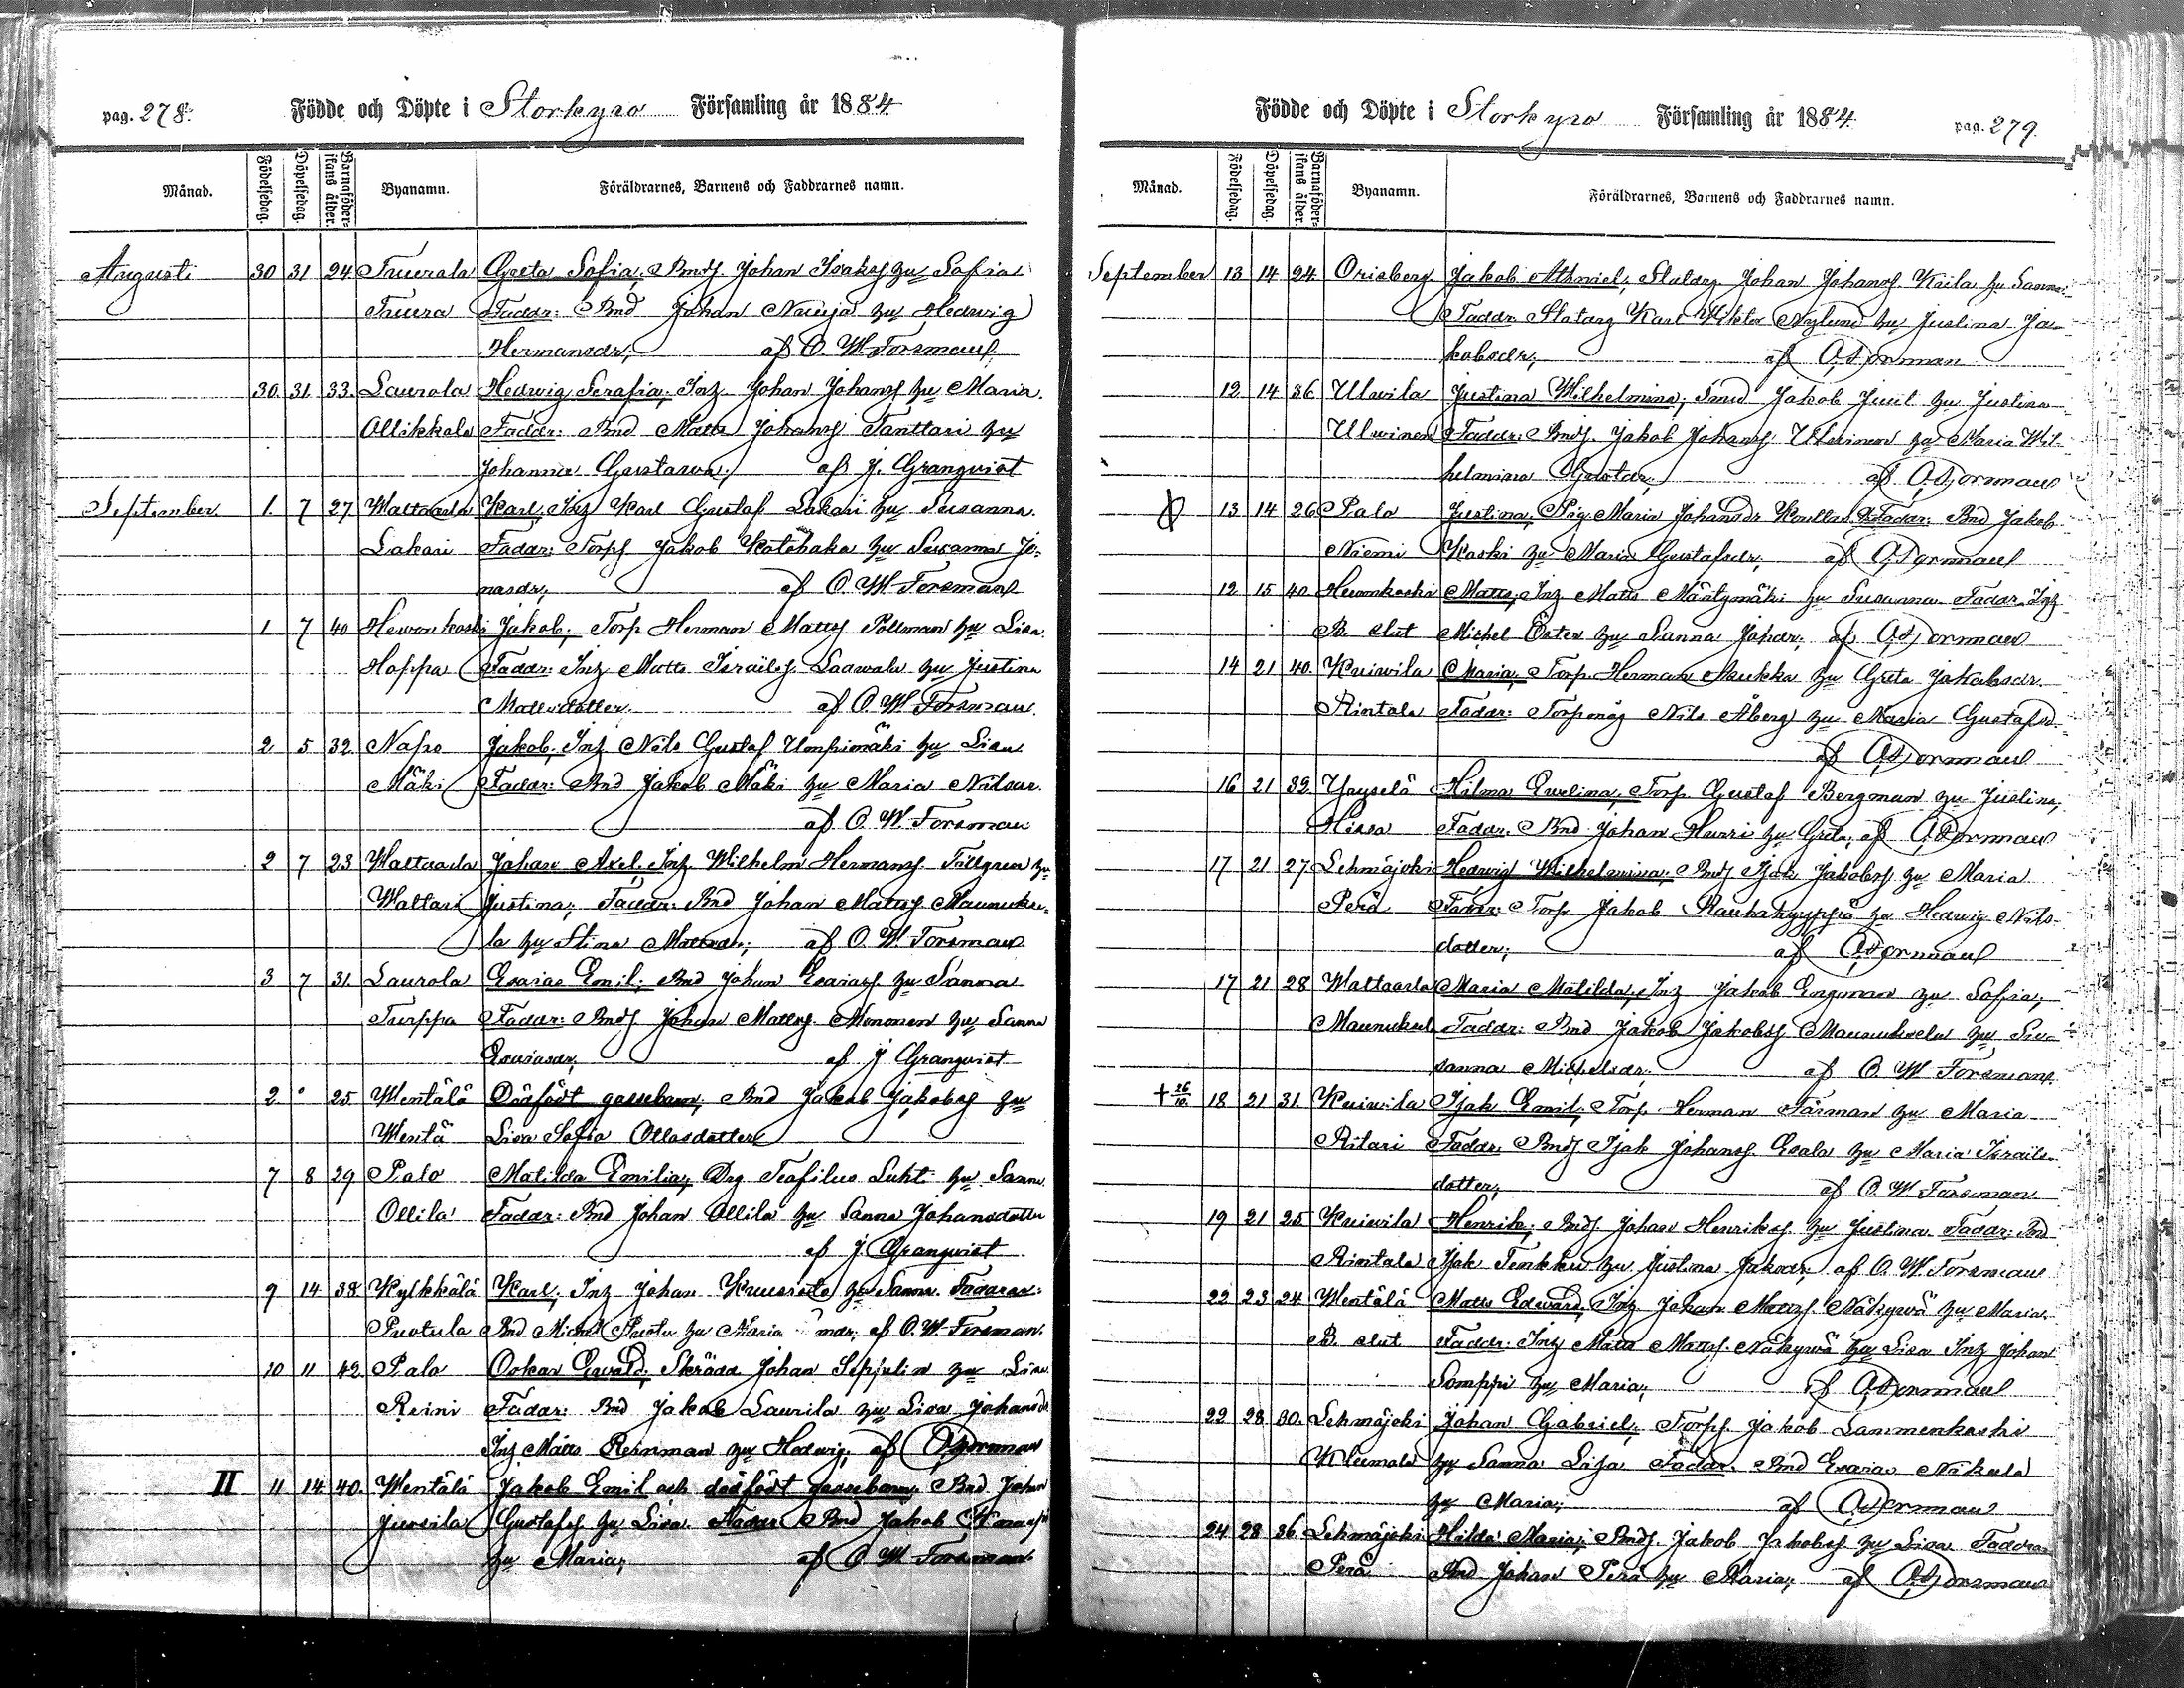 pag. 278.
Födde och Döpte i Storkyro Församling år 1884.
Månad. Födelsedag. Döpelsedag. Barnaföderskans ålder. Byanamn. Föräldrarnes, Barnens och Faddrarnes namn.
Augusti 30 31 24 Truurala Greta Sofia; Bnds Johan Isaks hu Sofia
Truura Faddr: Bnd Johan Nauja hu Hedwig
Hermansdr; af O. W. Forsman.
30. 31. 33. Laurola Hedwig Serafia; Inz Johan Johans hu Maria.
Ollikkala Faddr: Bnd Matts Johans Tanttari hu
Johanna Gustava; af J. Granqvist
September 1. 7 27 Waltaarla Karl; Inz Karl Gustaf Lakari hu Susanna.
Lakari Faddr: Torp Jakob Katohaka hu Susanna Jo-
nasdr; af O. W. Forsman
1 7 40 Hewonkoski Jakob; Torp Herman Matts Pollman hu Lisa.
Hoppa Faddr: Inz Matts Israels Laawala hu Justina
Mattsdotter. af O. W. Forsman.
2 5 32 Napo Jakob; Inz Nils Gustaf Umpimäki hu Lisa
Mäki Faddr: Bnd Jakob Mäki hu Maria Nilsdr.
af O. W. Forsman
2 7 23 Waltaarla Johan Axel; Inz Wilhelm Hermans Tällgren hu
Waltari Justina; Faddr: Bnd Johan Matts Maunuku-
la hu Stina Mattsdr; af O. W. Forsman
3 7 31. Laurola Esaias Emil; Bnd Johan Esaias hu Sanna
Turppa Faddr: Bnds Johan Matts Mononen hu Sanna
Esaiasdr; af J Granqvist
2 25 Wentälä Dödfödt gossebarn; Bnd Jakob Jakobs hu
Wentä Lisa Sofia Ottosdotter
7 8 29 Palo Matilda Emilia; Drg Teofilus Luhti hu Sanna
Ollila Faddr: Bnd Johan Ollila hu Sanna Johansdotter
af J. Granqvist
9 14 38 Kylkkälä Karl; Inz Johan Kuusisto hu Sanna. Faddrar:
Puotula Bnd Michel hu Maria af O. W. Forsman.
10 11 42 Palo Oskar Ewald; Skrädd Johan Sepjulin hu Lisa
Reini Faddr: Bnd Jakob Laurila hu Lisa Johansd
Inz Matts Reinman hu Hedwig; af O. Forsman
II 11 14 40. Wentälä Jakob Emil och dödfödt gossebarn; Bnd Johan
Jussila Gustafs hu Lisa. Faddr Bnd Jakob
hu Maria; af O W Forsman.
Födde och Döpte i Storkyro Församling år 1884.
pag. 279.
Månad. Födelsedag. Döpelsedag. Barnaföderskans ålder. Byanamn. Föräldrarnes, Barnens och Faddrarnes namn.
September 13 14 24 Orisberg Jakob Athniel; Statdrg Johan Johans Keila hu Sanna
Faddr Statdrg Karl Wiktor Nylund hu Justina Ja-
kobsdr; af O. Forsman
12 14 36 Ulwila Justina Wilhelmina; Smed Jakob Juul hu Justina
Ulwinen Faddr: Bnds. Jakob Johans Ulwinen hu Maria Wil-
helmina Gustdr; af O. Forsman
13 14 26 Palo Justina; Pig Maria Johansdr Faddr: Bnd Jakob
Niemi Kaski hu Maria Gustafsdr; af O. Forsman
12 15 40. Hewonkoski Matts; Inz Matts Mäntymäki hu Susanna Faddr Inz
B. slut Michel Öster hu Sanna Johdr; af O. Forsman
14 21 40. Kuiwila Maria; Torp Herman Skukka hu Greta Jakobsdr.
Rintala Faddr: Torpmåg Nils Åberg hu Maria Gustafsd
af O. Forsman
16 21 32. Yryselä Hilma Ewelina; Torp Gustaf Bergman hu Justina;
Hissa Faddr. Bnd Johan Huuri hu Greta; af O. Forsman
17 21 27 Lehmäjoki Hedwig Wilhelmina; Bnds Isak Jakobs hu Maria
Perä Faddr: Torp Jakob Rauhakyppä hu Hedwig Nils-
dotter; af O. Forsman
17 21 28 Waltaarla Maria Matilda; Inz Jakob Engman hu Sofia;
Maunukula Faddr: Bnd Jakob Jakobs Maunukula hu Su-
sanna Michelsdr; af O. W Forsman.
+ 26/10 18 21 31. Kuiwila Isak Emil; Torp. Herman Färman hu Maria
Ritari Faddr. Bnds Isak Johans Esala hu Maria Israils-
dotter; af O. W Forsman
19 21 25 Kuiwila Henrik; Bnds Johan Henriks hu Justina Faddr: Bnd
Rintala Isak Tenkku hu Justina Jakodr; af O. W. Forsman
22 23 24 Wentälä Matts Edward; Inz Johan Matts Näkywä hu Maria.
B. slut Faddr: Inz Matts Matts Näkywä hu Lisa Inz Johan
Somppi hu Maria; af O. Forsman
22 28 30. Lehmäjoki Johan Gabriel; Torp. Jakob Lammenkoski
Kleemola hu Sanna Lisa Faddr. Bnd Esaias Näkula
hu Maria; af O. Forsman
24 28 36. Lehmäjoki Hilda Maria; Bnds. Jakob Jakobs hu Lisa Faddrar
Perä Bnd Johan Perä hu Maria; af O. Forsman